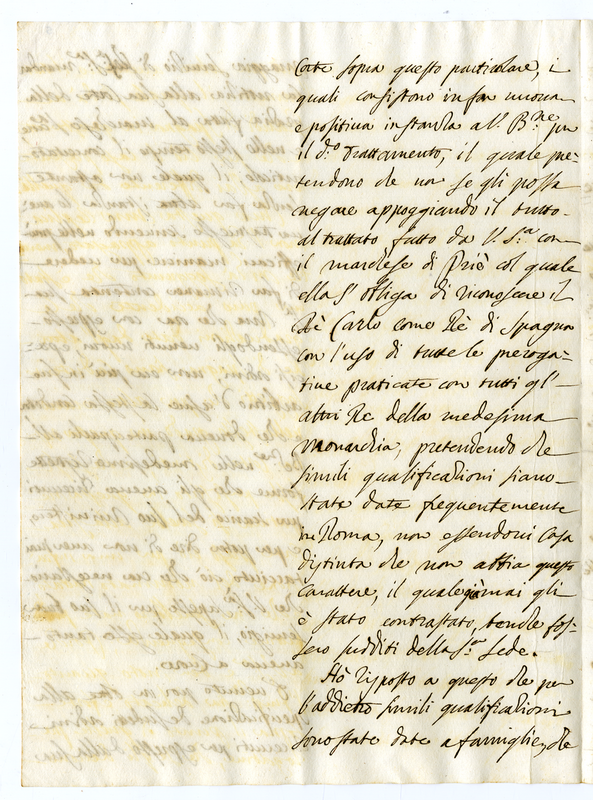 Corte sopra questo particolare, i
quali consistono in far nuova
e positiva instanza a V. B.ne per
il d.o trattamento, il quale pre-
tendono che non se gli possa
negare appoggiando il tutto
al trattato fatto da V. S.tà con
il marchese di Priè col quale
ella s'obliga di riconoscere il
Rè Carlo come Rè di Spagna
con l'uso di tutte le preroga-
tive praticate con tutti gl'
altri Re della medesima
Monarchia, pretendendo che
simili qualificazioni siano
state date frequentemente
in Roma, non essendovi Casa
distinta che non abbia questo
carattere, il quale giamai gli
è stato contrastato, benche fos-
sero sudditi della S.ta Sede.
Hò risposto a questo che per
l'addietro simili qualificazioni
sono state date a famiglie, che